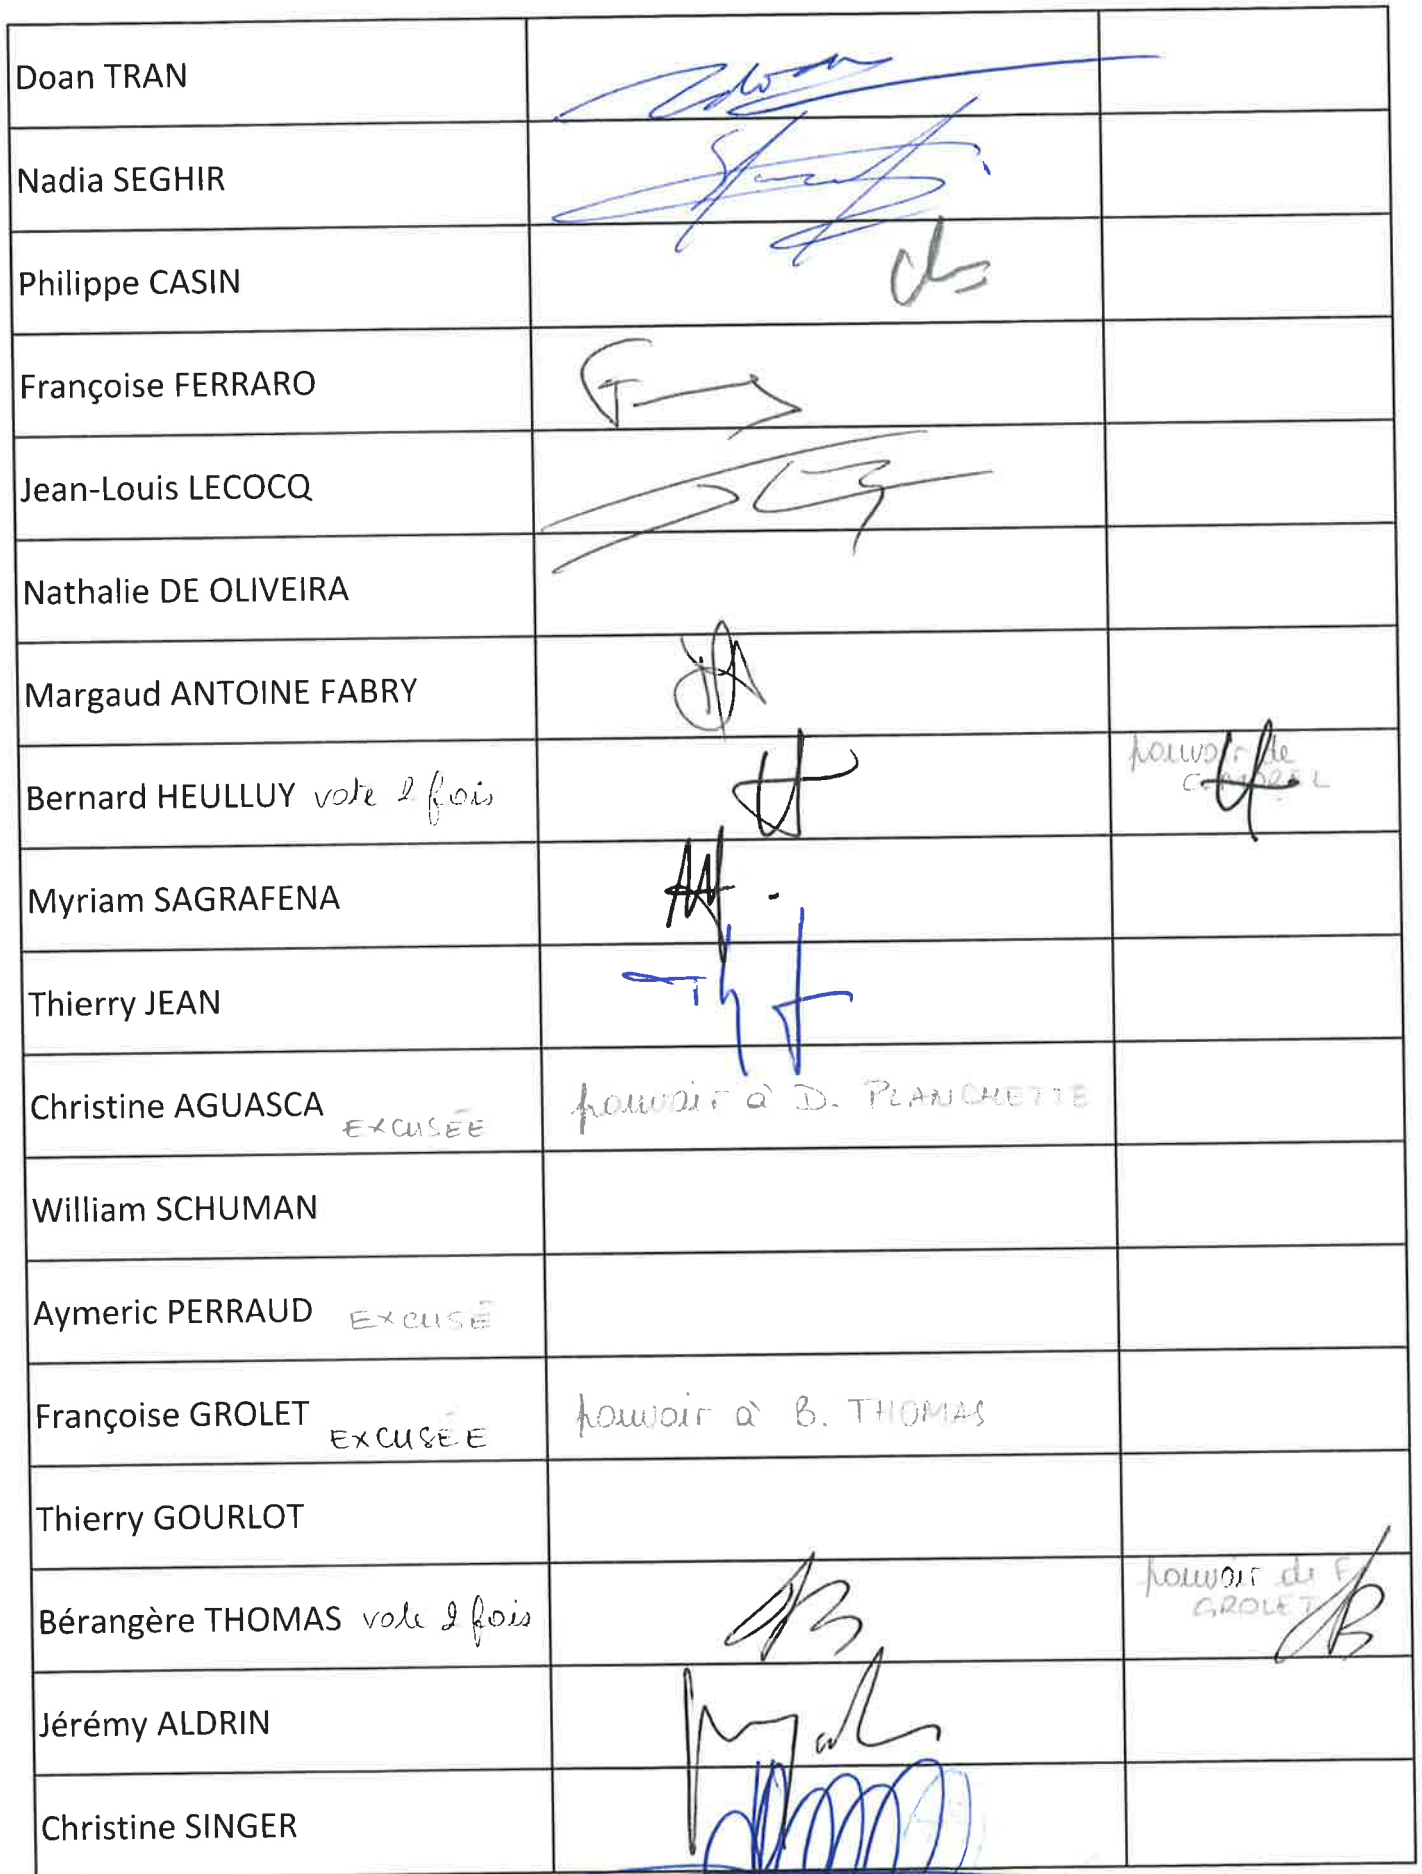 Doan TRAN
Nadia SEGHIR
Philippe CASIN
Françoise FERRARO
Jean-Louis LECOCQ
Nathalie DE OLIVEIRA
Margaud ANTOINE FABRY
Bernard HEULLUY vote 2 fois
pouvoir de
Myriam SAGRAFENA
Thierry JEAN
Christine AGUASCA EXCUSÉE pouvoir à D. PLANCHETTE
William SCHUMAN
Aymeric PERRAUD EXCUSÉ
Françoise GROLET EXCUSÉE pouvoir à B. THOMAS
Thierry GOURLOT
Bérangère THOMAS vote 2 fois pouvoir de F.
GROLET
Jérémy ALDRIN
Christine SINGER